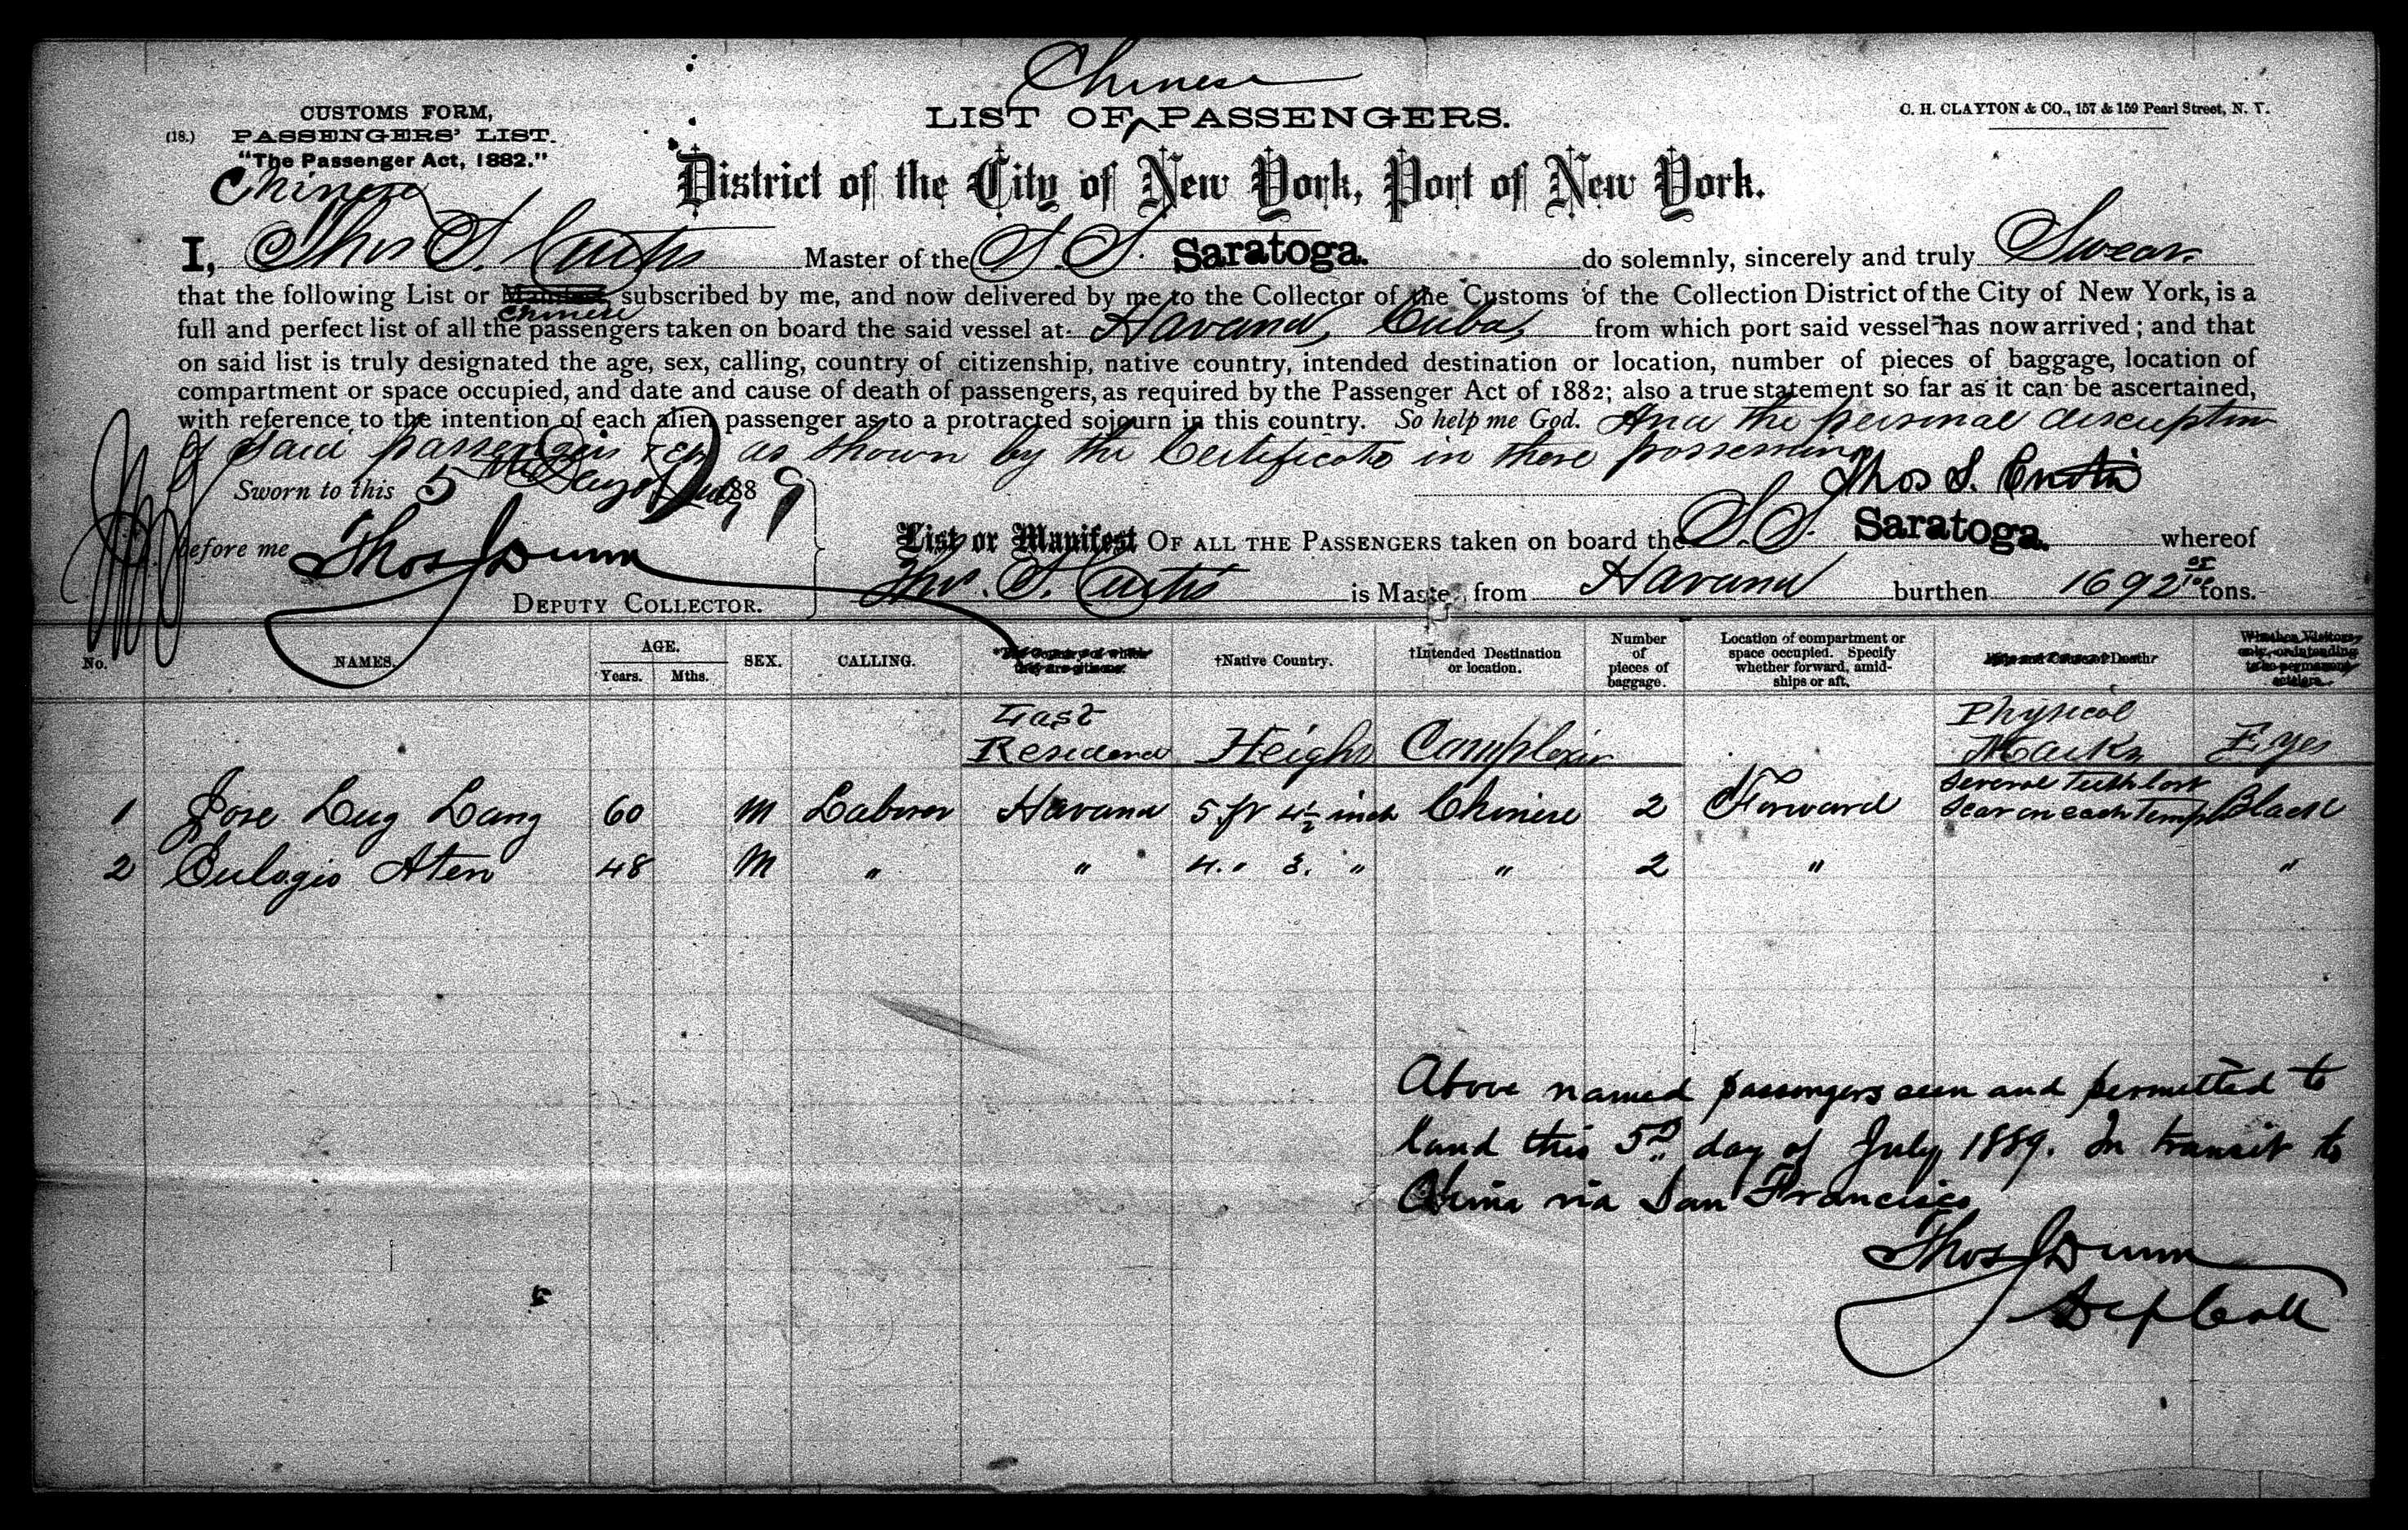 Chinese
CUSTOMS FORM,
(18.) PASSENGERS' LIST.
"The Passenger Act, 1882."
Chinese
LIST OF ^ PASSENGERS.
C. H. CLAYTON & CO., 157 & 159 Pearl Street, N. Y.
District of the City of New York, Port of New York.
I, Thos S. Curtis Master of the S.S. Saratoga. do solemnly, sincerely and truly Swear
that the following List or Manifest, subscribed by me, and now delivered by me to the Collector of the Customs of the Collection District of the City of New York, is a
Chinese
full and perfect list of all the passengers taken on board the said vessel at Havana, Cuba, from which port said vessel has now arrived; and that
on said list is truly designated the age, sex, calling, country of citizenship, native country, intended destination or location, number of pieces of baggage, location of
compartment or space occupied, and date and cause of death of passengers, as required by the Passenger Act of 1882; also a true statement so far as it can be ascertained,
with reference to the intention of each alien passenger as to a protracted sojourn in this country. So help me God. And the personal discription
of said passengers as shown by the Certificate in there possession
Thos S. Curtis
Sworn to this 5th Day of July 1889
before me Thos J Dunn
DEPUTY COLLECTOR.
List or Manifest OF ALL THE PASSENGERS taken on board the S.S. Saratoga. whereof
Thos. S. Curtis is Master, from Havana burthen 1692 tons.
No. NAMES. AGE. Years. Mths. SEX. CALLING. *The Country of which they are citizens. †Native Country. †Intended Destination or location. Number of pieces of baggage. Location of compartment or space occupied. Specify whether forward, amidships or aft. Date and Cause of Death
Last Residence Height Complexion Physical Marks Eyes
1 Jose Lug Lang 60 M Laborer Havana 5 ft 4½ inch Chinese 2 Forward Several Teeth lost Scar on each Temple Black
2 Eulogio Aten 48 M " " 4. " 3. " " 2 " "
Above named passengers seen and permitted to
land this 5th day of July 1889. In transit to
China via San Francisco
Thos J Dunn
Dep Coll